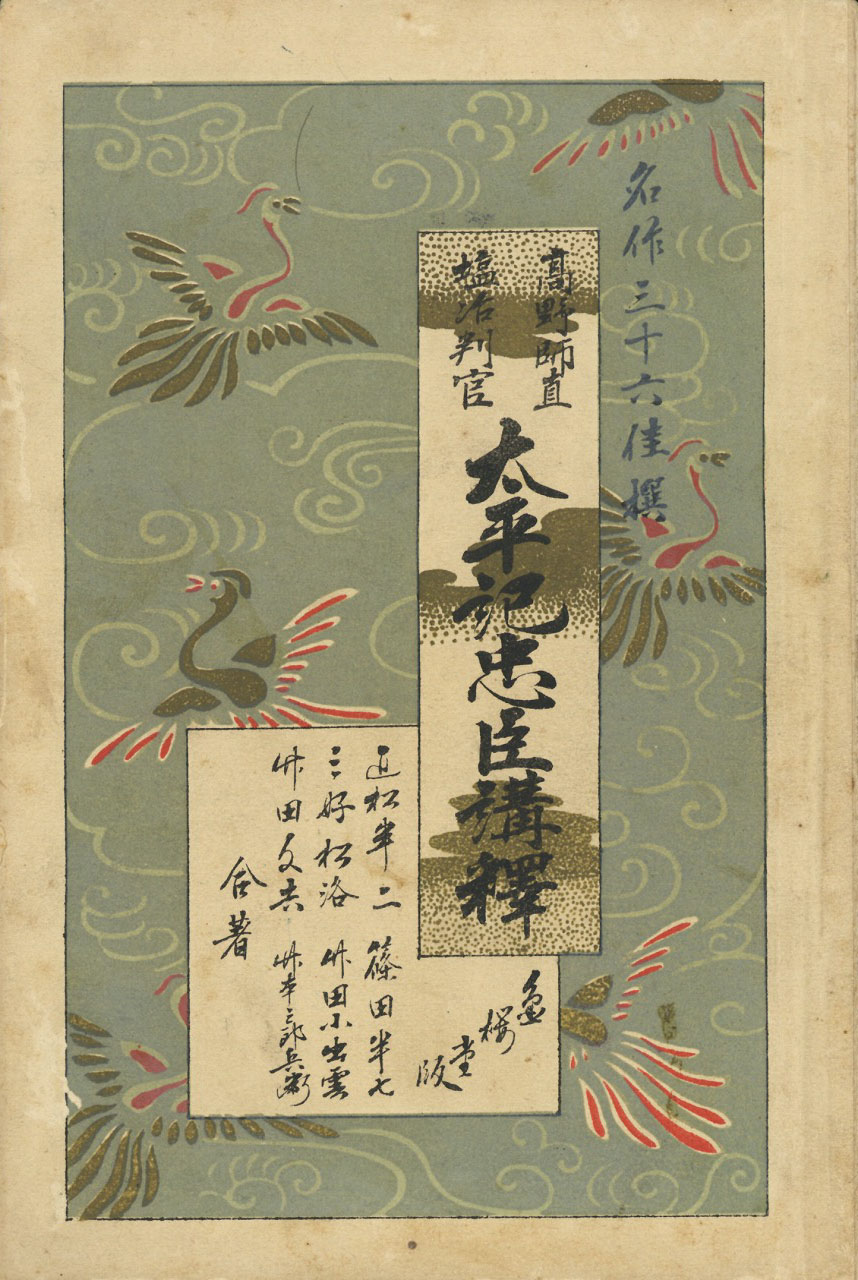 名作三十六佳撰
高野師直
塩冶判官
太平記忠臣講釋
近松半二 篠田半七
三好松洛 竹田小出雲
竹田文吉 竹本三郎兵衛
合著
金桜堂版